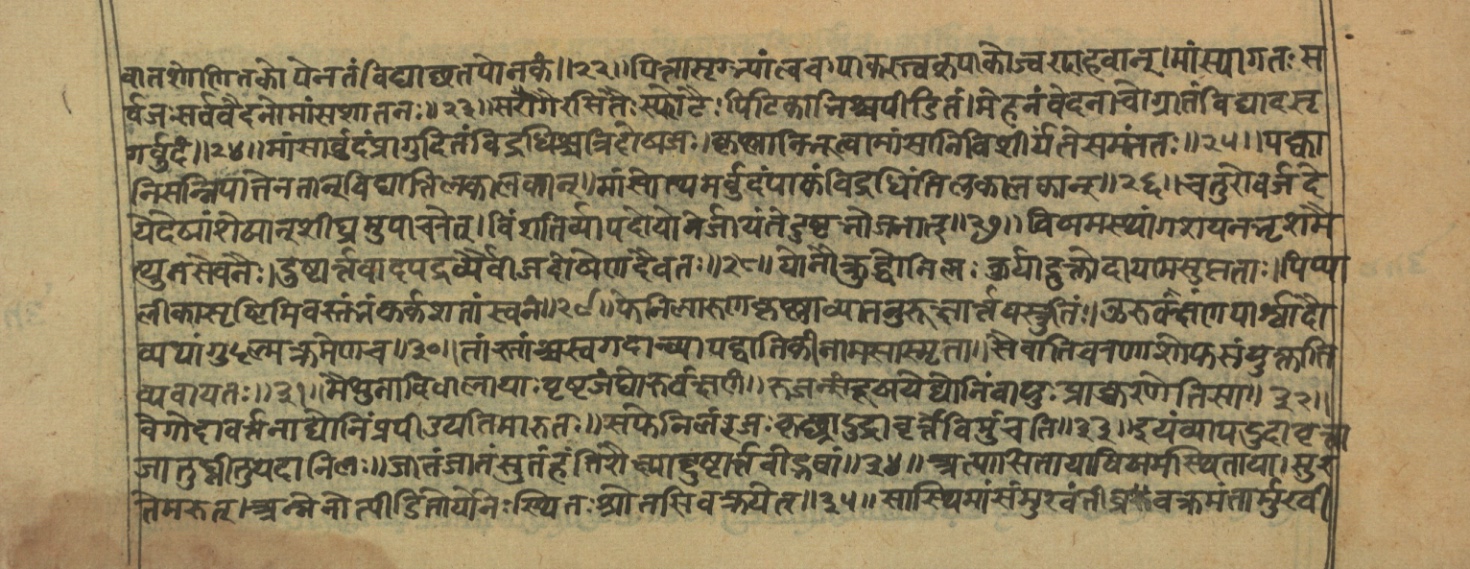 वातशोणितकोपेनतंविद्याछतपोनकं॥२२॥पित्तासृग्भ्यांत्वचःपाकस्त्वक्पाकोज्वरदाहवान्।मांस्पागतःस
र्वजःसर्ववेदनोमांसशातनः॥२३॥सरागैरसितैःस्फोटैःपिटिकाभिश्चपीडितं।मेहनंवेदनाचोग्रातंविद्यादसृ
गर्बुदं॥२४॥मांसार्बुदंप्रागुदितंविद्रधिश्चत्रिदोषजः।कृष्णानिभूत्वामांसानिविशीर्यंतेसमंततः॥२५॥पक्वा
निसन्निपातेनतान्विद्यात्तिलकालकान्॥मांसोत्थमर्बुदंपाकंविद्रधिंतिलकालकान्॥२६॥चतुरोवर्जये
देषांशेषान्शीघ्रमुपाचरेत्।विंशतिर्व्यापदोयोनेर्जायंतेदुष्टभोजनात्॥२७॥विषमस्थांगशयनभृशमै
थुनसेवनैः।दुष्टार्त्तवादपद्रव्यैर्बीजदोषेणदैवतः॥२८॥योनौक्रुद्धोनिलःकुर्याद्रुक्तोदायामसुप्तताः।पिप्पी
लिकासृप्तिमिवस्तंभंकर्कशतांस्वनं॥२९॥फेनिलारुणकृष्णाल्पतनुरूक्षार्त्तवस्रुतिं।ऊरुवंक्षणपार्श्वादौ
व्यथांगुल्मक्रमेणच॥३०॥तांस्तांश्चस्वगदान्व्यापद्वातिकीनामसास्मृता॥सैवातिचरणाशोफसंयुक्ताति
व्यवायतः॥३१॥मैथुनादिबालायाःपृष्टजंघोरुवंक्षणं॥रुजन्संदूषयेद्योनिंवायुःप्राक्चरणेतिसा॥३२॥
वेगोदावर्त्तनाद्योनिंप्रपीडयतिमारुतः॥सफेनिलंरजःकृच्छ्रादुदावृत्तंविमुंचति॥३३॥इयंव्यापदुदावृत्ता
जातघ्नीतुयदानिलः॥जातंजातंसुतंहंतिरौक्ष्याद्दुष्टार्त्तवोद्भवां॥३४॥अत्याशितायाविषमंस्थितायाःसुर
तेमरुत्।अन्नेनोत्पीडितोयोनेःस्थितःश्रोतसिवक्रयेत्॥३५॥सास्थिमांसंमुखंतीव्ररुजवक्रमंतर्मुखी